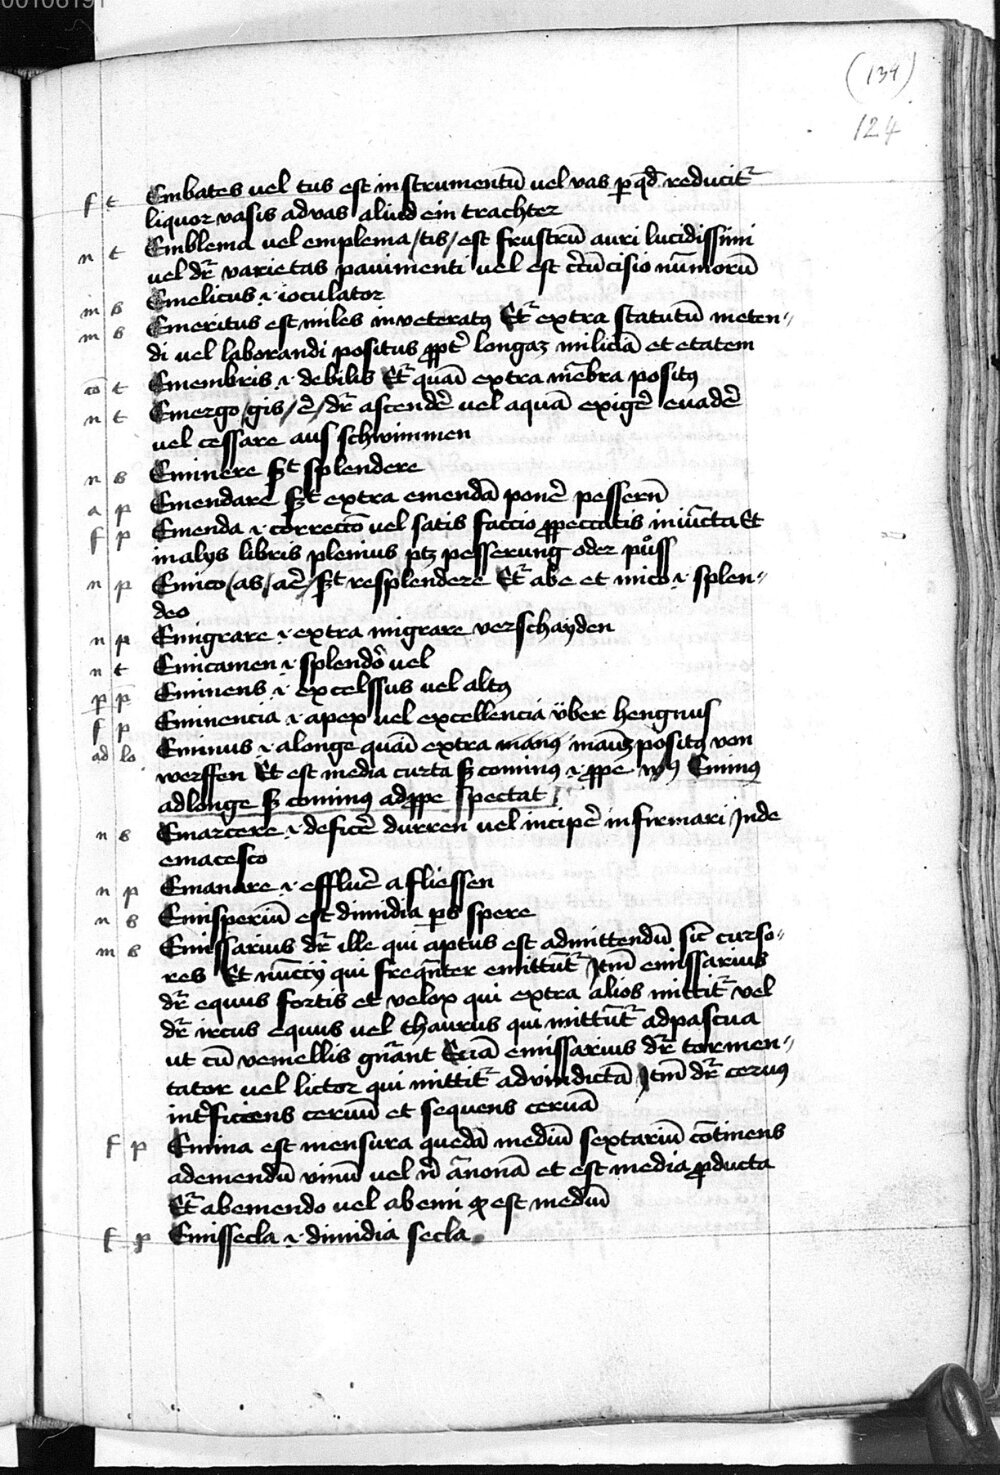 00106191
(134)
124
f t Embates vel tus est instrumentū vel vas p qd reducit̄
liquor vasis ad vas aliud ein trachter
n t Emblema vel emplema /tis/ est frustrū auri lucidissimi
vel dr̄ varietas pavimenti vel est cīcūcisio nūmorū
m b Emelicus .i. ioculator
m b Emeritus est miles inveteratꝰ Et̄ extra statutū meten-
di vel laborandi positus ꝓpt̄ longaz miliciā et etatem
co t Emembris .i. debilis Et̄ quasi extra mēbra positꝰ
n t Emergo /gis/ ē/ dr̄ ascendē vel aquā exigē evadē
vel cessare aus schwimmen
n b Eminere s̄t splendere
a p Emendare s̄t extra emendā ponē pessern̄
f p Emenda .i. correctō vel satis factio ꝓ peccatis iniūcta Et
in alys libris plenius ptz pesserung oder půss
n p Emico /as/ aē/ s̄t resplendere Et̄ ab e et mico .i. splen-
deo
n p Emigrare .i. extra migrare verschayden
n t Emicamen .i. splendor vel
p p Eminens .i. excelssus vel altꝰ
f p Eminencia .i. apex vel excellencia über hengnus
ad lo Eminus .i. a longe quasi extra manꝰ manꝰ positꝰ von
werffen Et est media curta s̄ cominꝰ .i. ꝓpe Eminꝰ
ad longe s̄ cominꝰ ad ꝓpe spectat
n b Emarcere .i. deficē durren vel incipē infirmari Inde
emacesco
n p Emanare .i. effluē a fliessen
n b Emisperiū est dimidia ps spere
m b Emissarius dr̄ ille qui aptus est admittendū sic̄ curso-
res Et nūccÿ qui freqn̄ter emittūt̄ Itm̄ emissarius
dr̄ equus fortis et velox qui extra alios mittit̄ vel
dr̄ ircus equus vel thaurus qui mittūt̄ ad pascua
ut cū vemellis gn̄rant Eciā emissarius dr̄ tormen-
tator vel lictor qui mittit̄ ad vindictā Itm̄ dr̄ cervꝰ
int̄ficiens cervū et sequens cervā
f p Emina est mensura quedā mediū sextariū cōtinens
ad emendū vinū vel n̄ ānonā et est media ꝓducta
Et̄ ab emendo vel ab emi qꝫ est mediū
f p Emissecla .i. dimidia secla